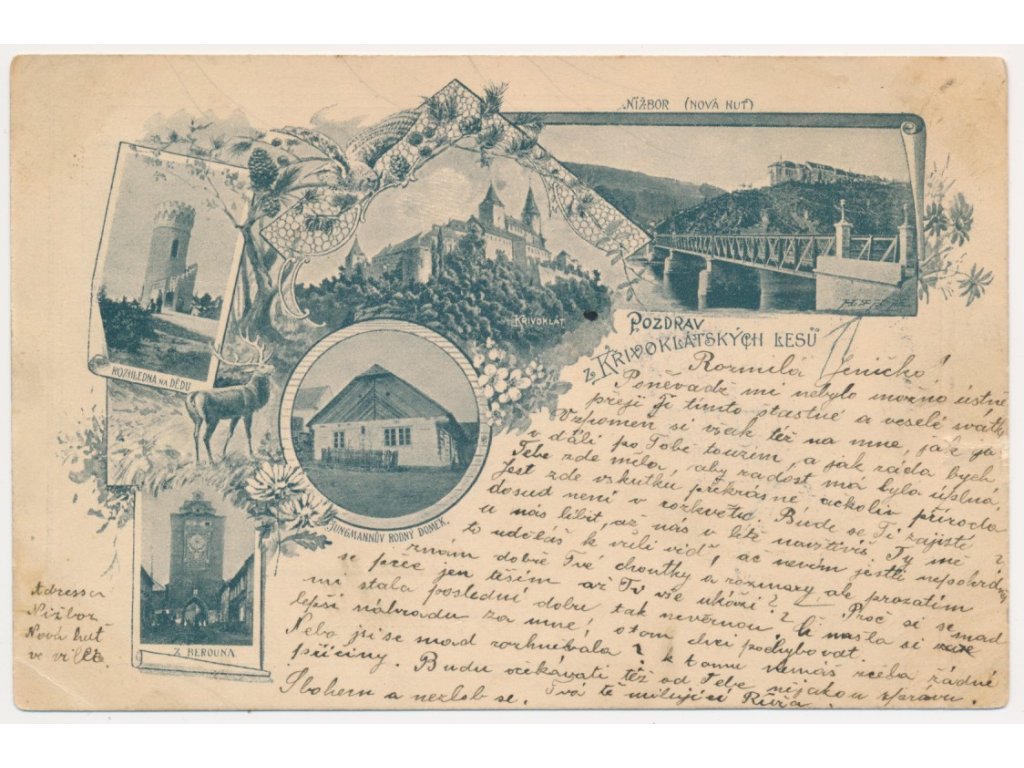 NIŽBOR (NOVÁ HUŤ)
KŘIVOKLÁT
ROZHLEDNA NA DĚDU
POZDRAV
Z KŘIVOKLÁTSKÝCH LESŮ
JUNGMANNŮV RODNÝ DOMEK.
Z BEROUNA
Rozmilá Jeničko!
Poněvadž mi nebylo možno ústně
přeji Ti tímto šťastné a veselé svátky
Vzpomeň si však též na mne, jak já
v dáli po Tobě toužím, a jak ráda bych
Tebe zde měla, aby radost má byla úplná,
Jest zde vskutku překrásně ačkoliv příroda
dosud není v rozkvětu. Bude se Ti zajisté
u nás líbit, až nás v létě navštívíš. Ty mě
to uděláš k vůli viď, ač nevím jestli nepohrdneš
znám dobře Tvé choutky a rozmary ale prozatím
se přece jen těším až Ty vše ukáži? Proč si se
mi stala poslední dobu tak nevěrnou? Či našla si
lepší náhradu za mne, o tom chci pochybovat.
Nebo jsi se snad rozhněvala? k tomu nemáš zcela žádné
příčiny. Budu očekávati též od Tebe nijakou zprávu.
Sbohem a nezlob se. Tvá tě milující Růža.
Adressa
Nižbor
Nová huť
ve ville